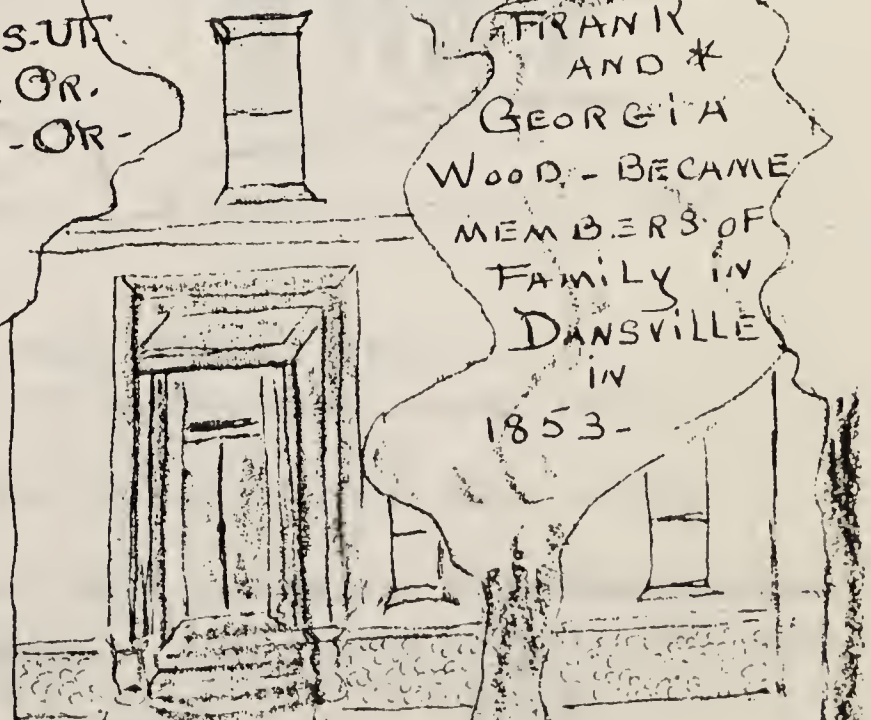 S-UT
OR.
-OR-
FRANK
AND *
GEORGIA
WOOD.- BECAME
MEMBERS OF
FAMILY IN
DANSVILLE
IN
1853-